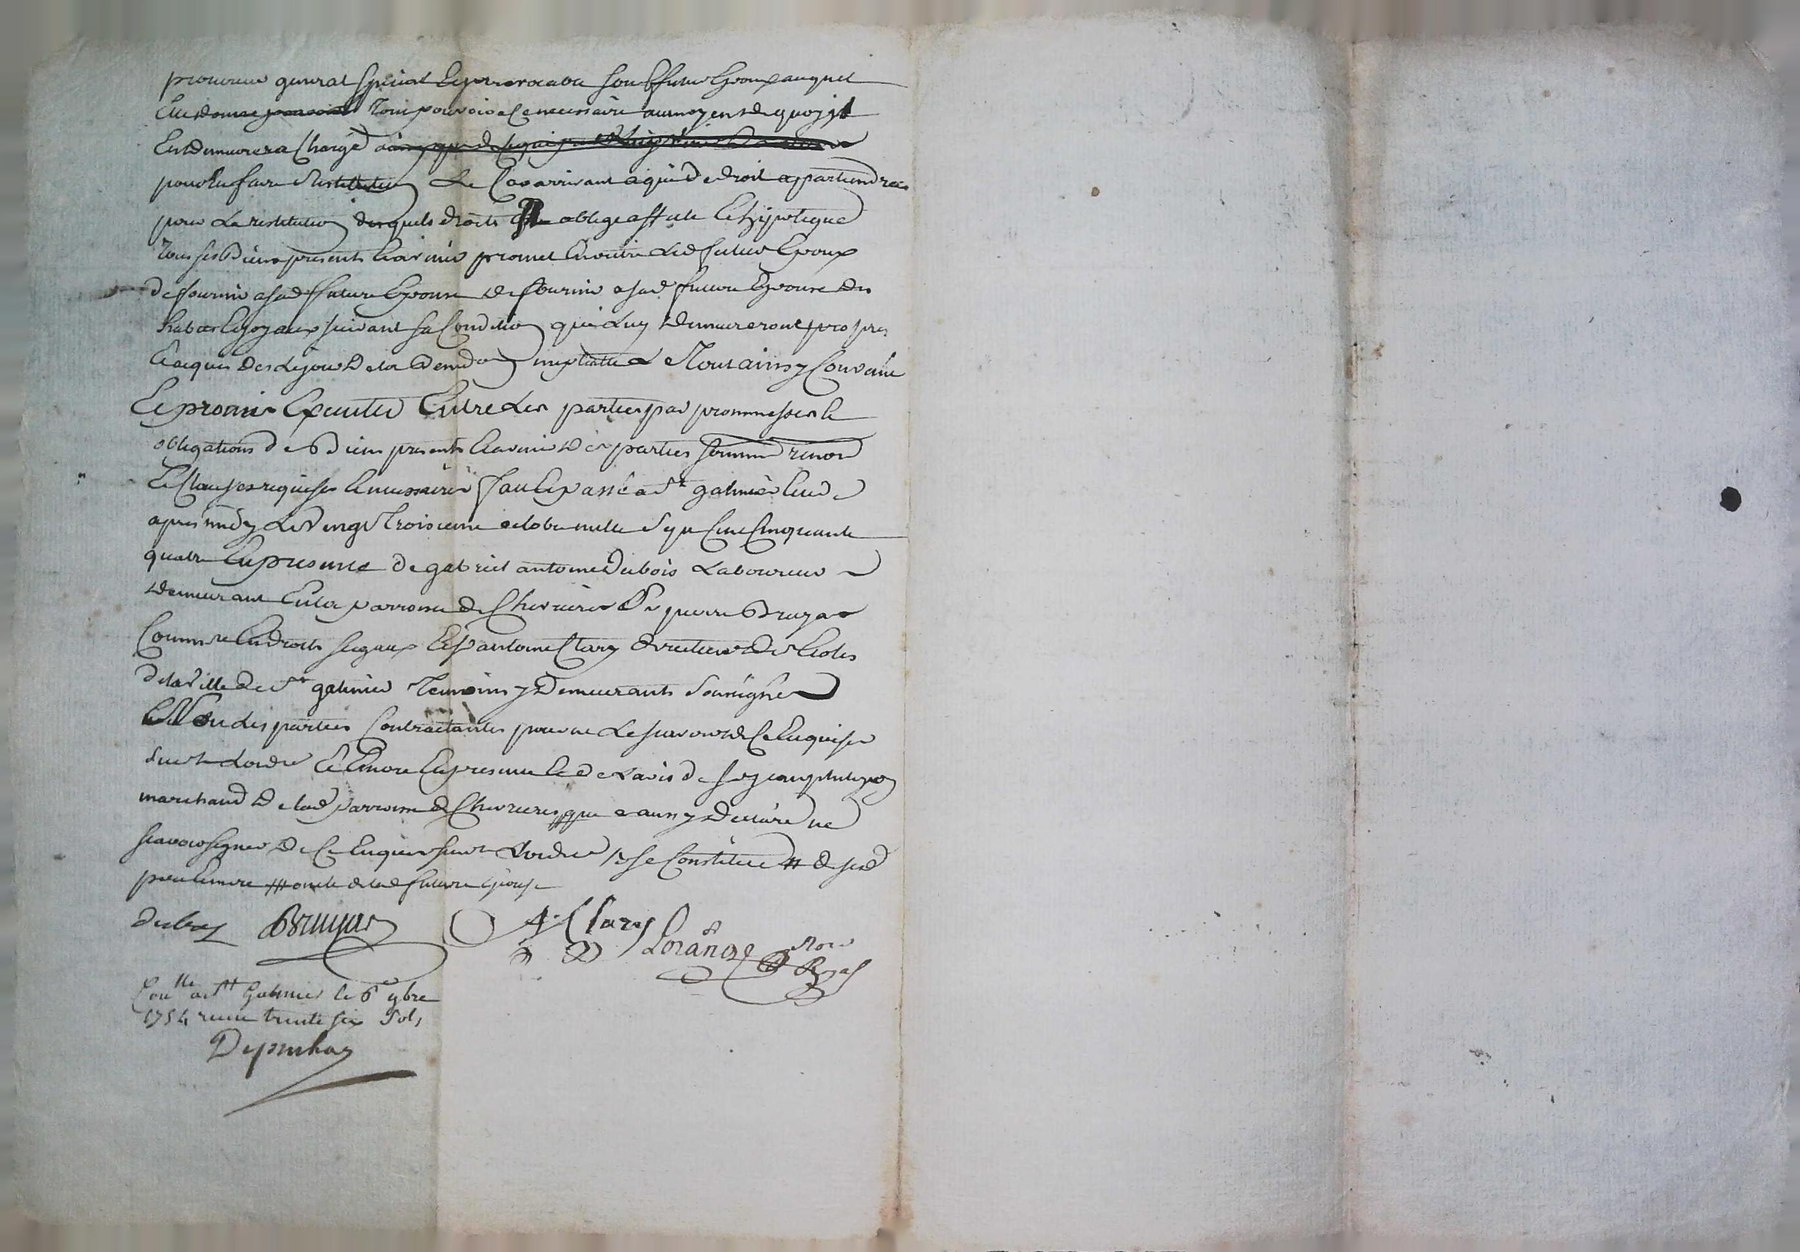 procureur general special et irrevocable son futur epoux auquel
elle donne pouvoir tout pouvoir a ce necessaire aumoyen de quoy il
en demeurera chargé
pour en faire restitution le cas arrivant a qui de droit appartiendra
pour la restitution desquels droits oblige affecte et hypoteque
tous ses biens presents et avenir promet en outre led futur epoux
de fournir a sad future epouse de fournir a sad future epouse des
habits et joyaux suivant sa condition qui luy demeureront propres
et acquis des le jour de la bened.on nuptialle tout ainsy convenu
et promis executer entre les parties par prommesses et
obligations de biens presents et avenir des parties
et clauses requises et necessaires fait et passé a st galmier etude
apres midy le vingt troisieme octobre mille sept cent cinquante
quatre en presence de gabriel antoine dubois laboureur
demeurant en la parroisse de Chevrieres Sr pierre Bruyas
commis en droits legaux et Sr antoine Clary directeur des ecoles
de la ville de st galmier temoins y demeurants soussignés
et non les parties contractantes pour ne le scavoir de ce enquises
suivt lordre et encore en presence et de lavis de
marchand de lad parroisse de Chevrieres que a aussy declaré ne
scavoir signer de ce enquis suivt lordre
oncle de lad future epouse
duboy Bruyas A. Clary Lorange Nore
Royal
Conlle a st Galmier le 6e 9bre
1754 receu trente six sols